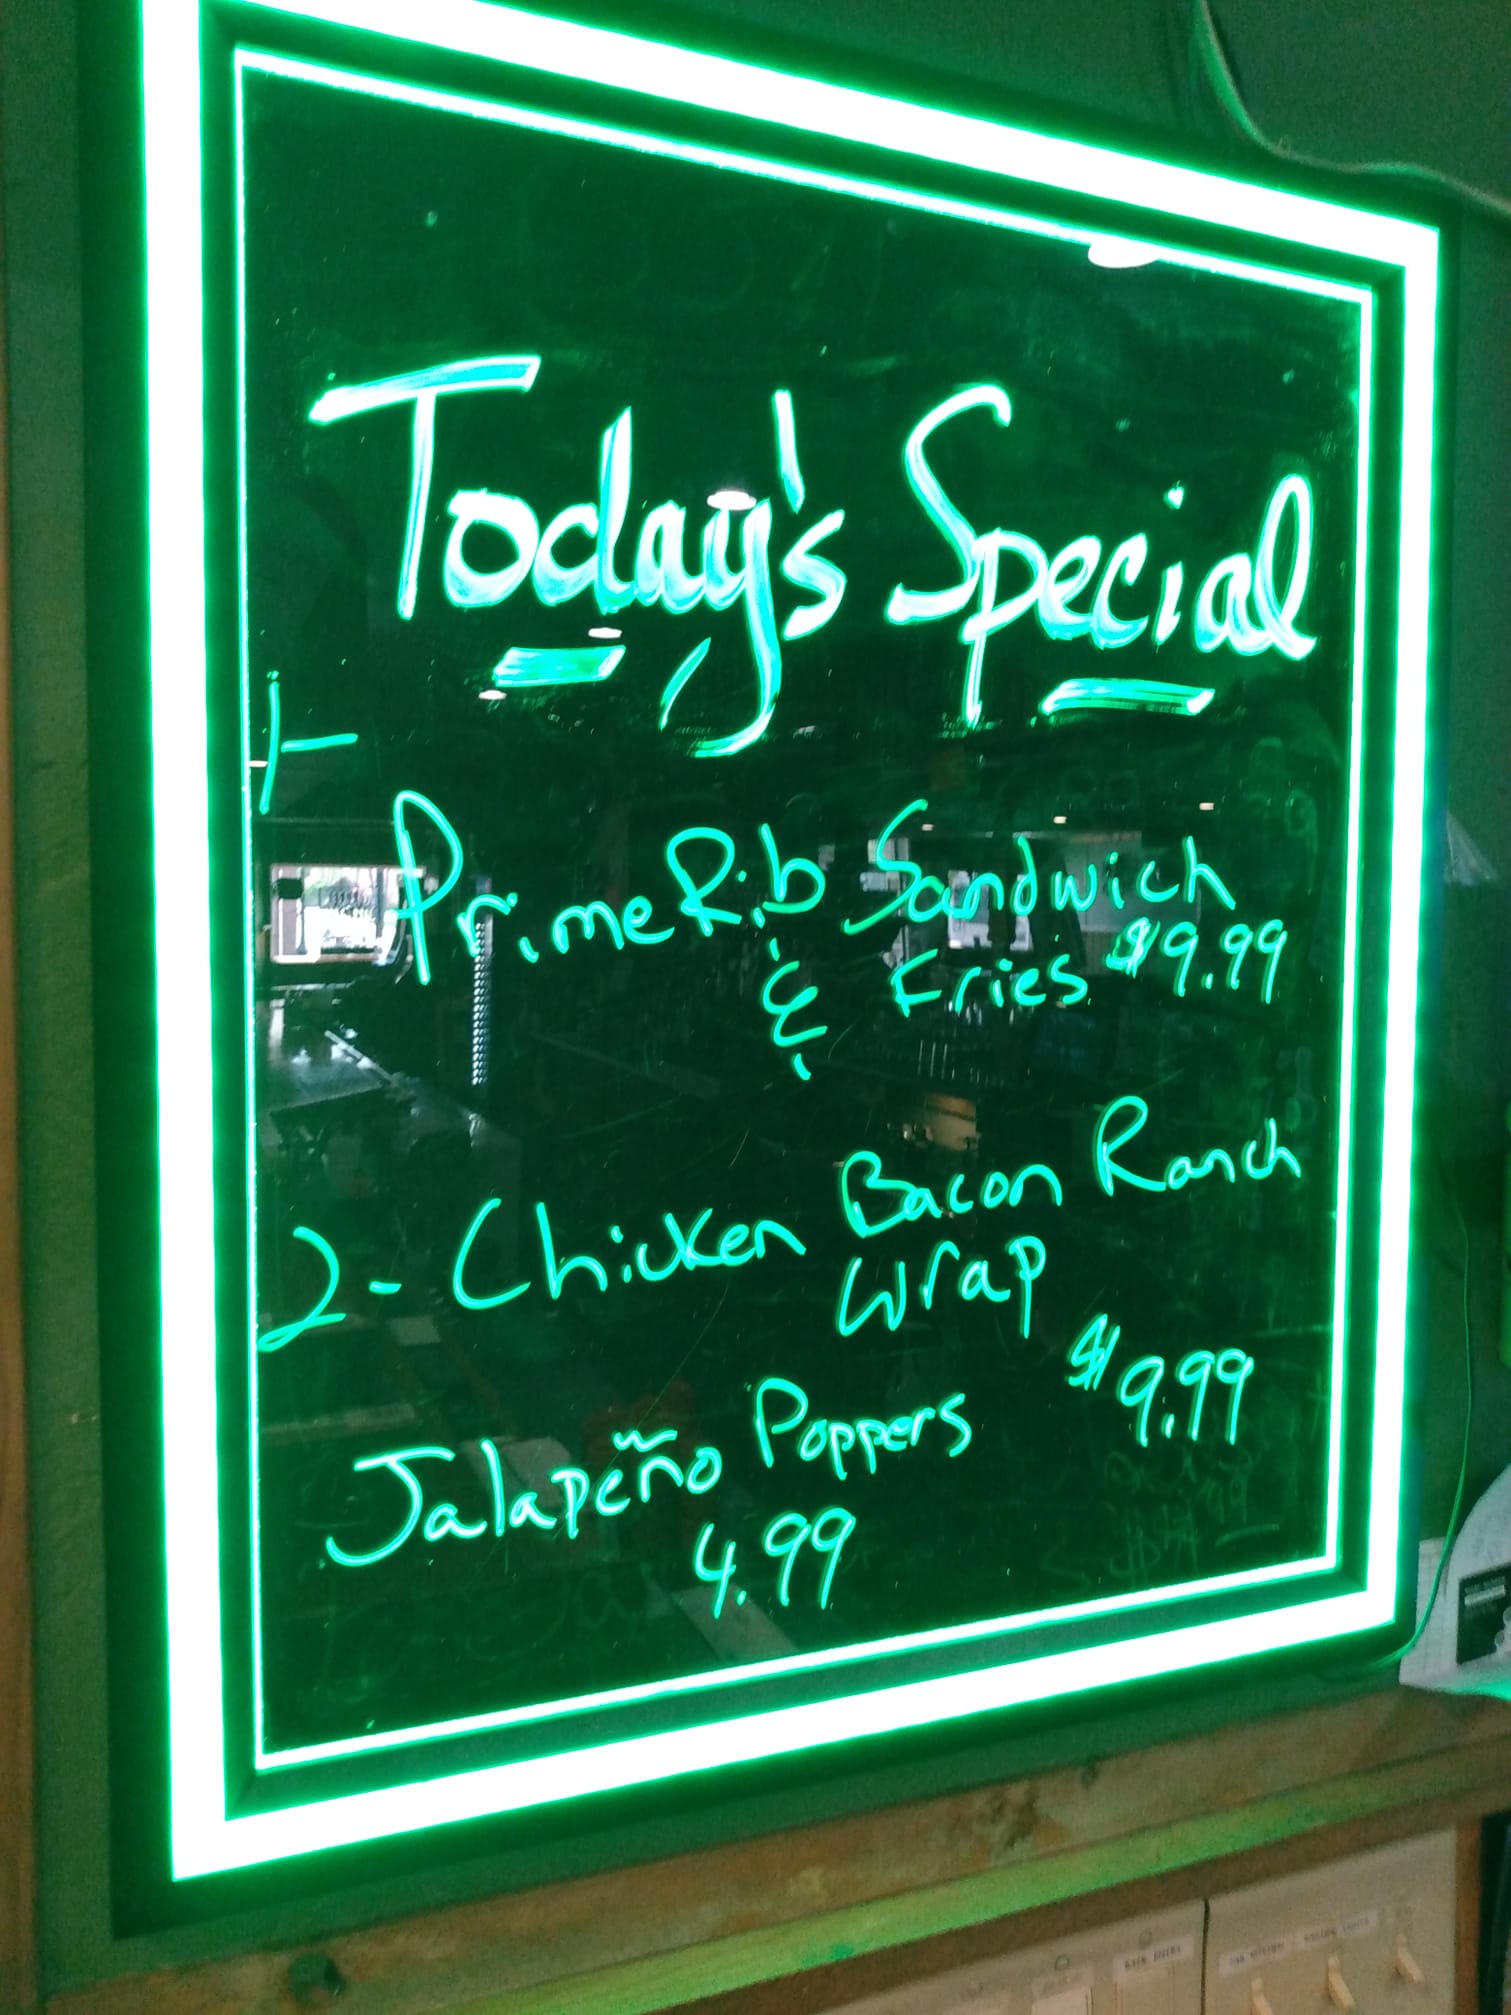 Today's Special
1-
Prime Rib Sandwich
& Fries $9.99
2- Chicken Bacon Ranch
Wrap
$9.99
Jalapeño Poppers
4.99